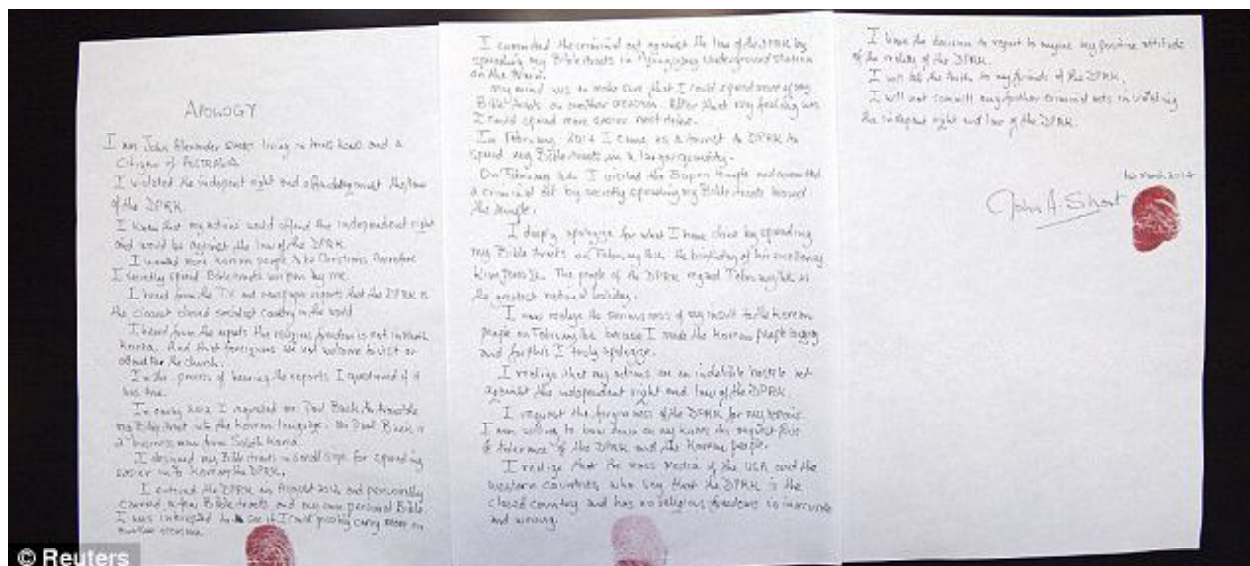 APOLOGY
I am John Alexander Short living in Hong Kong and a
Citizen of AUSTRALIA
I violated the indepent right and against the law
of the DPRK.
I knew that my actions would offend the independent right
and would be against the law of the DPRK.
I wanted more Korean people to be Christians therefore
I secretly spead Bible tracts by me.
I heard from the TV and newspaper reports that the DPRK is
the closest closed socialist country in the world
I heard from the reports the religious freedom is not in North
Korea. And that foreigners are not welcome to visit or
attend the church.
In the process of hearing the reports I questioned if it
was true.
In early 2012 I requested Mr Paul Back to translate
my Bible tract into the Korean language. Mr Paul Back is
a business man from South Korea
I designed my Bible tracts in small size for spending
easier into Korea the DPRK.
I entered the DPRK in August 2012 and personally
carried a few Bible tracts and my own personal Bible
I was interested to see if I could possibly carry more on
another occasion
I committed the criminal act against the law of the DPRK by
spending my Bible tracts in Pyongyang Underground station
on the train.
My mind was to make sure that I could spend more of my
Bible tracts on another occasion. After that my feeling was
I could spend more easier next time.
In February 2014 I came as a tourist to DPRK to
spend my Bible tracts in a larger quantity.
On February 16th I visited the temple and committed
a criminal act by secretly spending my Bible tracts around
the temple.
I deeply apologize for what I have done by spending
my Bible tracts on February 16th, the birthday of his excellency
Kim Jong Il. The people of the DPRK regard February 16th as
the greatest national holiday.
I now realize the seriousness of my insult to the Korean
people on February 16th because I made the Korean people angry
and for this I truly apologize.
I realize that my actions are an indelible hostile act
against the independent right and law of the DPRK.
I request the forgiveness of the DPRK for my
I am willing to bow down on my knees to request this
of tolerance of the DPRK and the Korean people.
I realize that the mass media of the USA and the
western countries who say that the DPRK is the
closed country and has no religious freedom is inaccurate
and wrong.
I have the decision to my positive attitude
of the reality of the DPRK.
I will tell the truth to my friends of the DPRK.
I will not commit any further criminal acts in violating
the indepent right and law of the DPRK.
1st March 2014
John A. Short
© Reuters